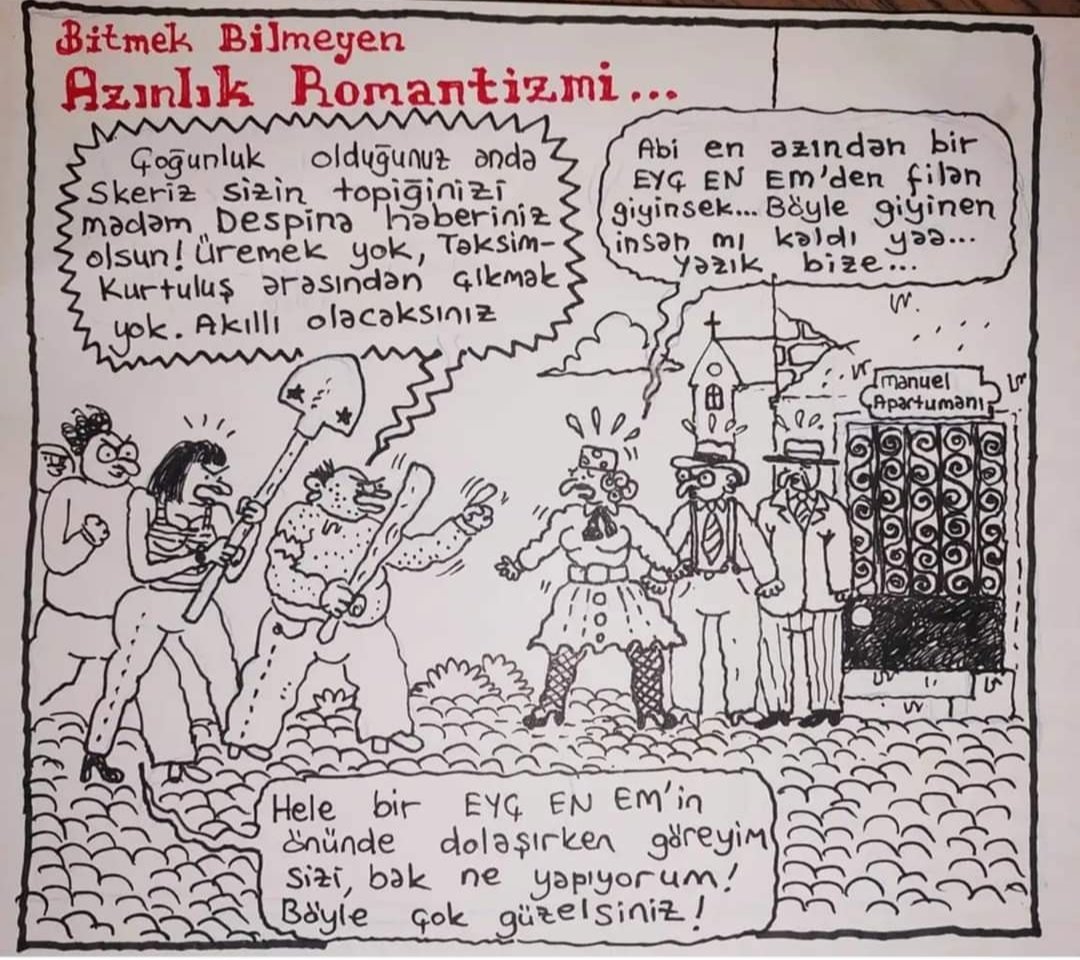 Bitmek Bilmeyen
Azınlık Romantizmi...
Çoğunluk olduğunuz anda
Skeriz sizin topiğinizi
madam Despina haberiniz
olsun! Üremek yok, Taksim-
Kurtuluş arasından çıkmak
yok. Akıllı olacaksınız
Abi en azından bir
EYÇ EN EM'den filan
giyinsek... Böyle giyinen
insan mı kaldı yaa...
yazık bize...
manuel
Apartumanı
Hele bir EYÇ EN EM'in
önünde dolaşırken göreyim
sizi, bak ne yapıyorum!
Böyle çok güzelsiniz!